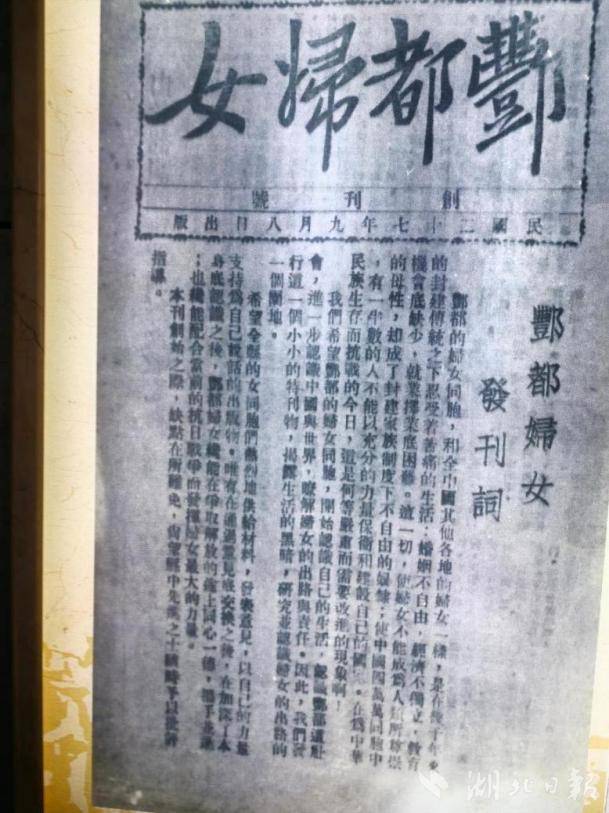 酆都婦女
創刊號
民國二十七年九月八日出版
酆都婦女
發刊詞
酆都的婦女同胞，和全中國其他各地的婦女一樣，是在幾千年來
的封建傳統之下忍受着著痛的生活：婚姻不自由，經濟不獨立，教育
機會底缺少，就業擇業底困難。這一切，使婦女不能成為人類所尊崇
的母性，却成了封建家族制度下不自由的奴隸；使中國四萬萬同胞中
，有一半數的人不能以充分的力量保衛和建設自己的國家。在為中華
民族生存而抗戰的今日，這是何等嚴肅而需要改進的現象啊！
我們希望酆都的婦女同胞，開始認識自己的生活，認識酆都這社
會，進一步認識中國與世界，瞭解婦女的出路與責任。因此，我們發
行這一個小小的特刊物，揭露生活的黑暗，研究並認識婦女的出路的
一個園地。
希望全縣的女同胞們熱烈地供給材料，發表意見，以自己的力量
支持為自己說話的出版物。唯有在通過意見底交換之後，在加深了本
身底認識之後，酆都婦女纔能在爭取解放的途上同心一德，攜手並進
；也纔能配合當前的抗日戰爭而發揮婦女最大的力量。
本刊創始之際，缺點在所難免，尚望縣中先進之士隨時予以批評
指導。
湖北日報